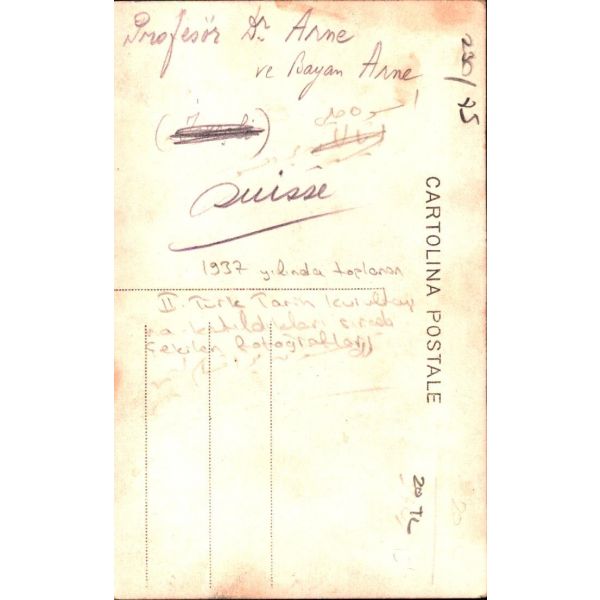 Profesör Dr. Arne
ve Bayan Arne
Suisse
1937 yılında toplanan
II. Türk Tarih Kurultayı
na katıldıkları sırada
çekilen fotoğrafları
CARTOLINA POSTALE
20 TL